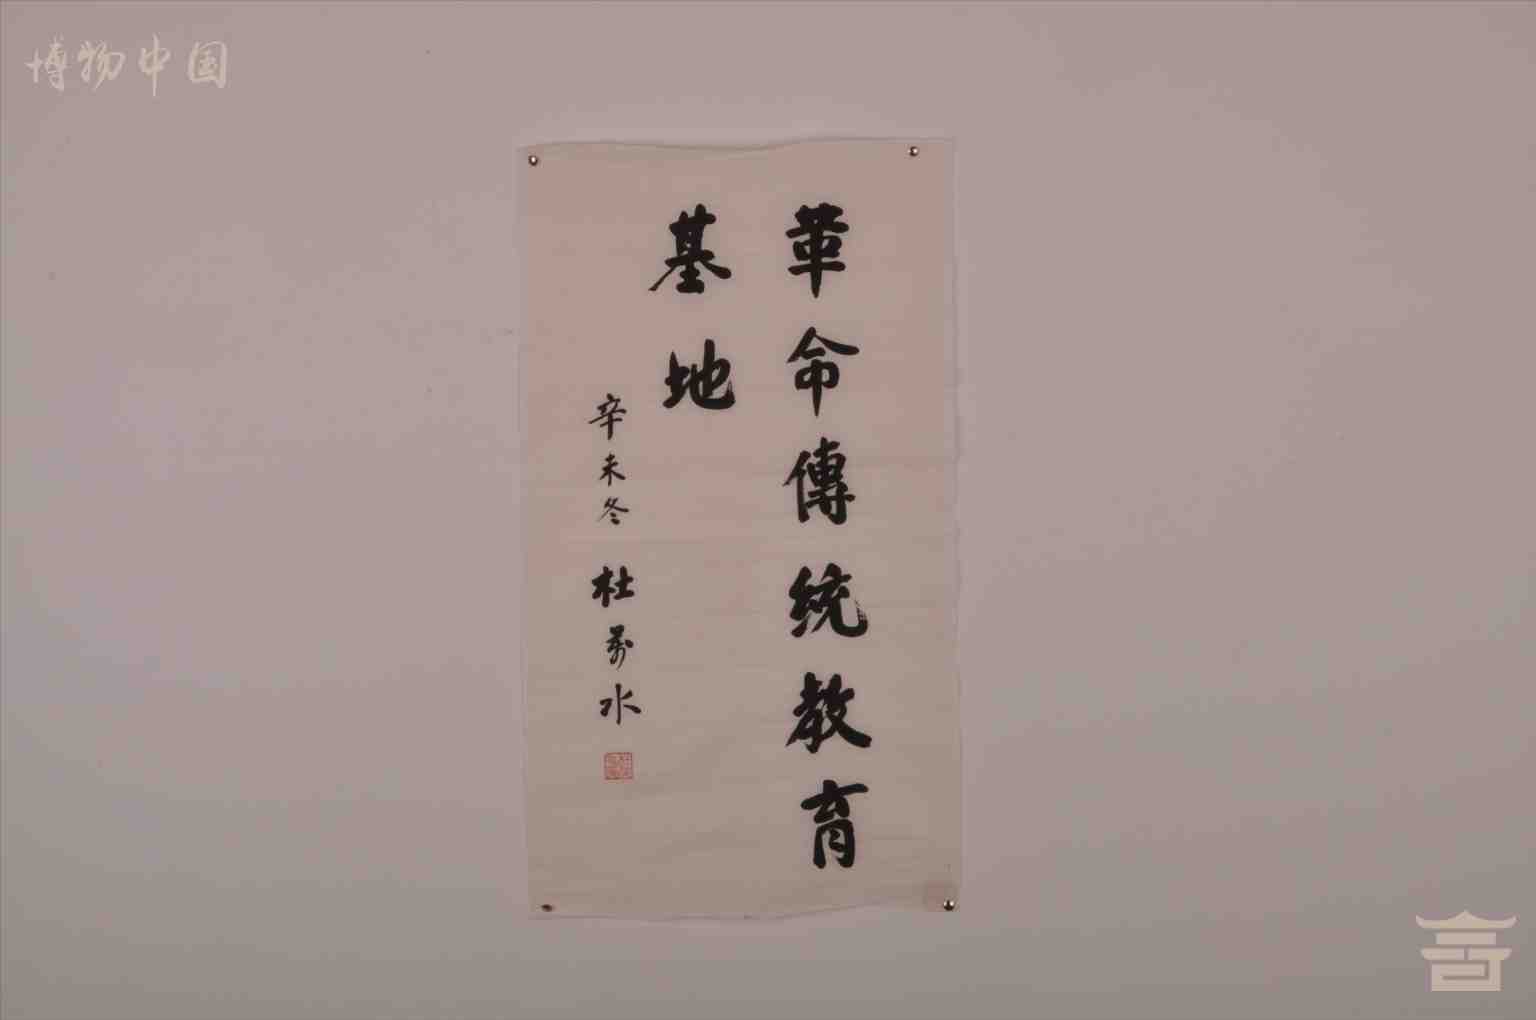 博物中国
革命傳統教育
基地
辛未冬 杜万水